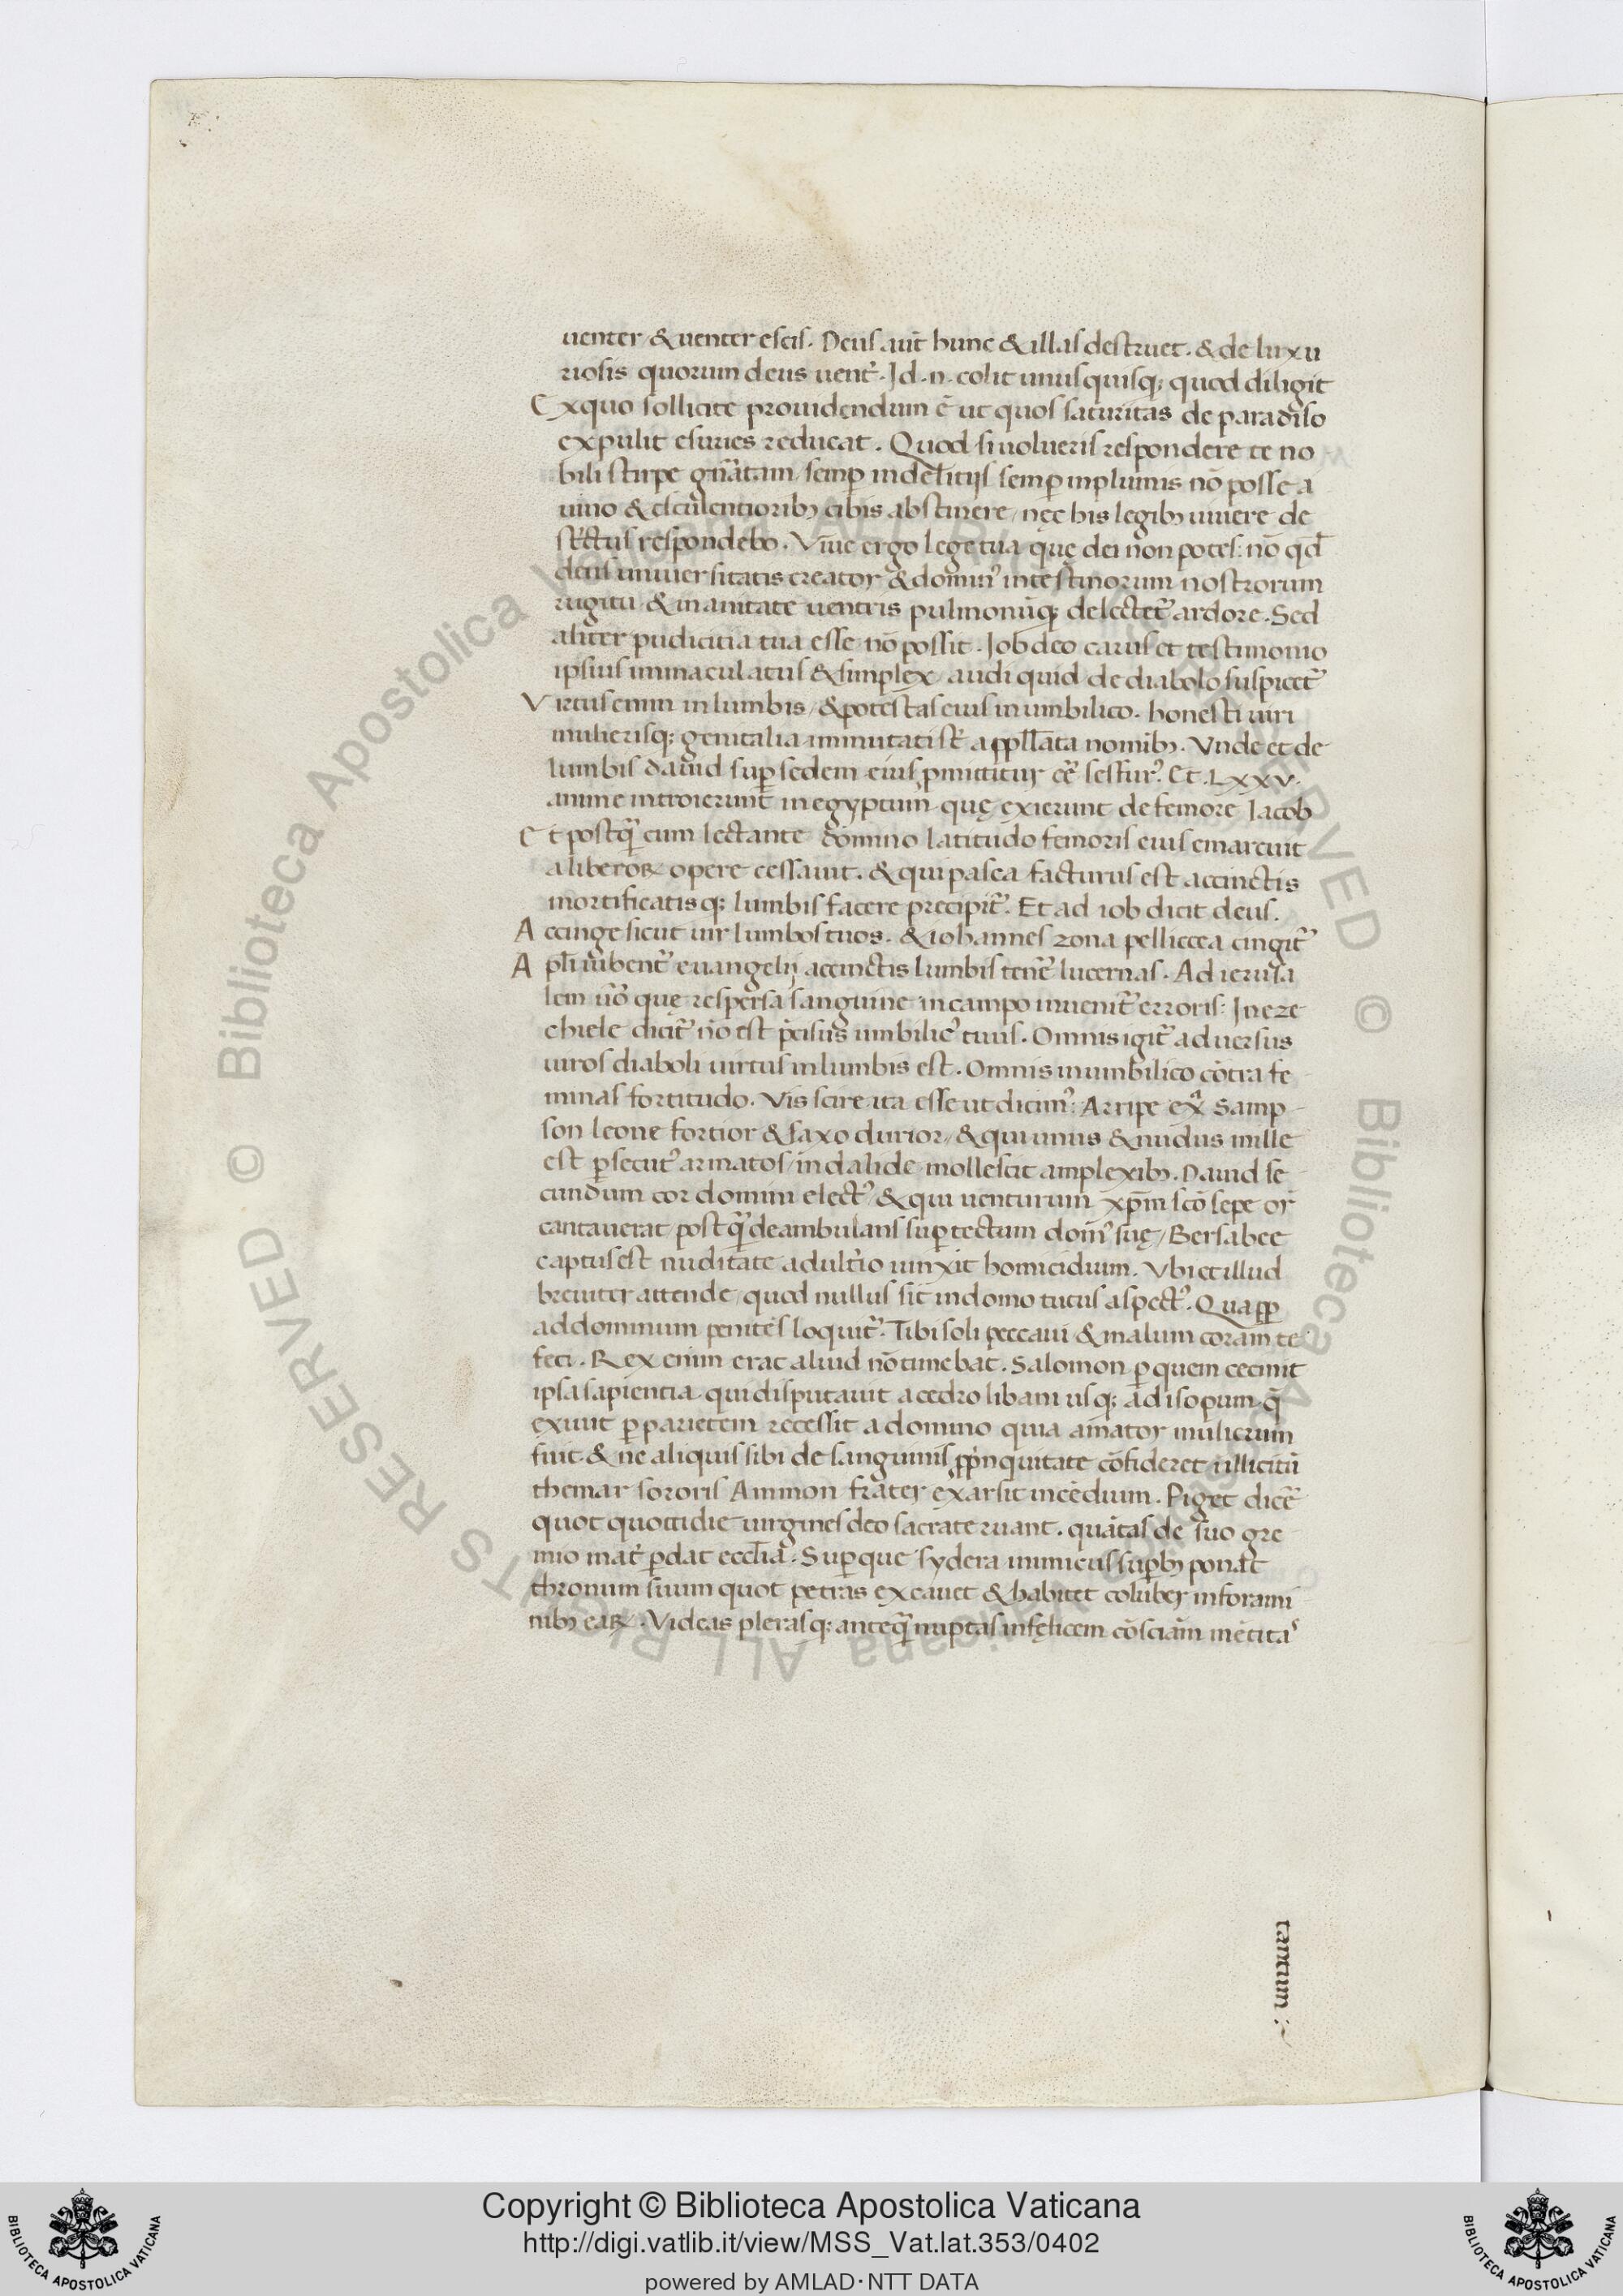 uenter / & uenter escis. Deus aut̄ hunc & illas destruet. & de luxu
riosis quorum deus uent̉. Id .n. colit unusquisq; quod diligit
Exquo sollicite prouidendum ē ut quos saturitas de paradiso
expulit esuries reducat. Quod si uolueris respondere te no
bili stirpe gn̄atam / semꝑ in delitijs semꝑ in plumis nō posse a
uino & esculentioribꝫ cibis abstinere / nęc his legibꝫ uiuere de
strictus respondebo. Viue ergo lege tua quę dei non potes: nō qd̄
deus uniuersitatis creator & domin᾽ intestinorum nostrorum
rugitu & inanitate uentris pulmonūq; delectet᷑ ardore. Sed
aliter pudicitia tua esse nō possit. Iob deo carus et testimonio
ipsius immaculatus & simplex / audi quid de diabolo suspicet᷑
Virtus enim in lumbis / & potestas eius in umbilico. honesti uiri
mulierisq; genitalia immutatis st̄ appll̄ata nomibꝫ. Vnde et de
lumbis dauid suꝑ sedem eius ꝓmittitur eē sessur᾽. Et . LXXV.
anime introierunt in egyptum quę exierunt de femore Iacob
Et postq̄̄ cum lectante domino latitudo femoris eius emarcuit
a liberoꝝ opere cessauit. & qui pasca facturus est accinctis
mortificatisq; lumbis facere precipit᷑. Et ad iob dicit deus.
Accinge sicut uir lumbos tuos. & iohannes zona pelliccea cingit᷑
Apl̄i iubent᷑ euangelij accinctis lumbis tenē lucernas. Ad ierusa
lem ūo quę respersa sanguine in campo inuenit᷑ erroris: In eze
chiele dicit᷑ nō est p̄cisus umbilic᾽ tuus. Omnis igit᷑ aduersus
uiros diaboli uirtus in lumbis est. Omnis in umbilico cōtra fe-
minas fortitudo. Vis scire ita esse ut dicim᾽: Arripe exͣ Samp-
son leone fortior & saxo durior / & qui unus & nudus mille
est ꝑsecut᾽ armatos / in dalide mollescit amplexibꝫ. Dauid se
cundum cor domini elect᾽ & qui uenturum xp̄m scō sepe or̄
cantauerat postq̄̄ deambulans suꝑ tectum dom᾽ suę / Bersabee
captus est nuditate adult̉io uinxit homicidium. Vbi et illud
breuiter attende / quod nullus sit in domo tutus aspect᾽. Quaꝓꝑ
ad dominum penitēs loquit᷑. Tibi soli peccaui & malum coram te
feci. Rex enim erat aliud nō timebat. Salomon ꝑ quem cecinit
ipsa sapientia qui disputauit a cedro libani usq; ad isopum q̄
exiuit ꝑ parietem recessit a domino quia amator mulierum
fuit & ne aliquis sibi de sanguinis ꝓpinquitate cōfideret illicitū
themar sororis Ammon frater exarsit incēdium. Piget dicē
quot quottidie uirgines deo sacrate ruant. quātas de suo gre
mio mat̉ ꝑdat eccl̄ia. Suꝑ que sydera inimicus suꝑbꝫ ponat
thronum suum quot petras excauet & habitet coluber in forami
nibꝫ eaꝝ. Videas plerasq; anteq̄̄ nuptas infęlicem cōsciam mētitaˢ
tantum :~